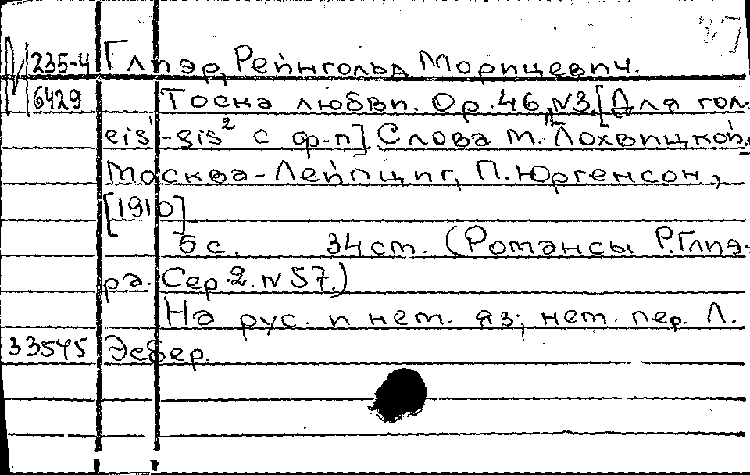 М 235-4 Глиэр, Рейнгольд Морицевич.
6429 Тоска любви. Ор.46, №3. [Для гол.
eis¹-gis² с ф-п] Слова М. Лохвицкой.
Москва-Лейпциг, П. Юргенсон,
[1910]
5 с. 34 см. (Романсы Р. Глиэ-
ра. Сер. 2. № 57.)
На рус. и нем. яз; нем. пер. Л.
33545 Эсбер.